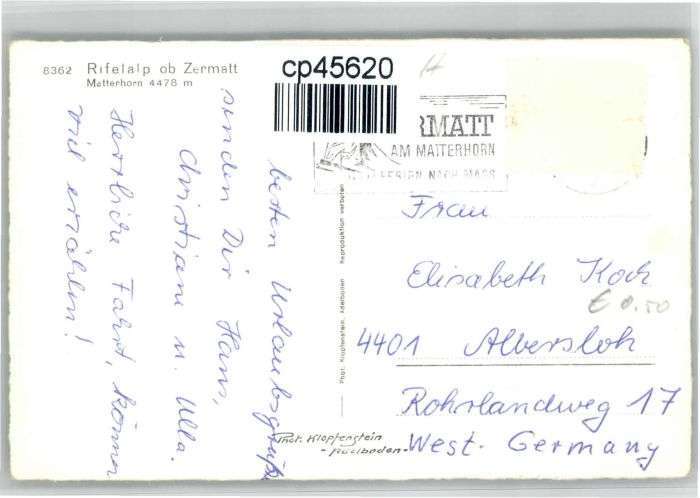 8362 Rifelalp ob Zermatt
Matterhorn 4478 m
cp45620
RMATT
AM MATTERHORN
DESIGN NACH MASS
besten Urlaubsgrüße
senden Dir Hans,
Christiane u. Ulla.
Herrliche Fahrt, können
viel erzählen!
Phot. Klopfenstein, Adelboden
Reproduktion verboten
Frau
Elisabeth Koch
€ 0.50
4401 Albersloh
Rohrlandweg 17
West-Germany
Phot. Klopfenstein
- Adelboden -